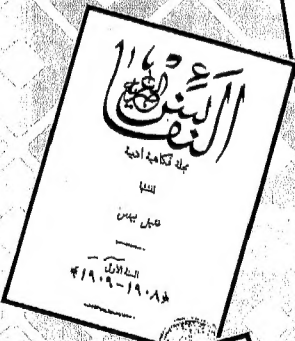 النفائس العصرية
مجلة فكاهية أدبية
لمنشئها
خليل بيدس
السنة الأولى
*١٩٠٨ – ١٩٠٩*